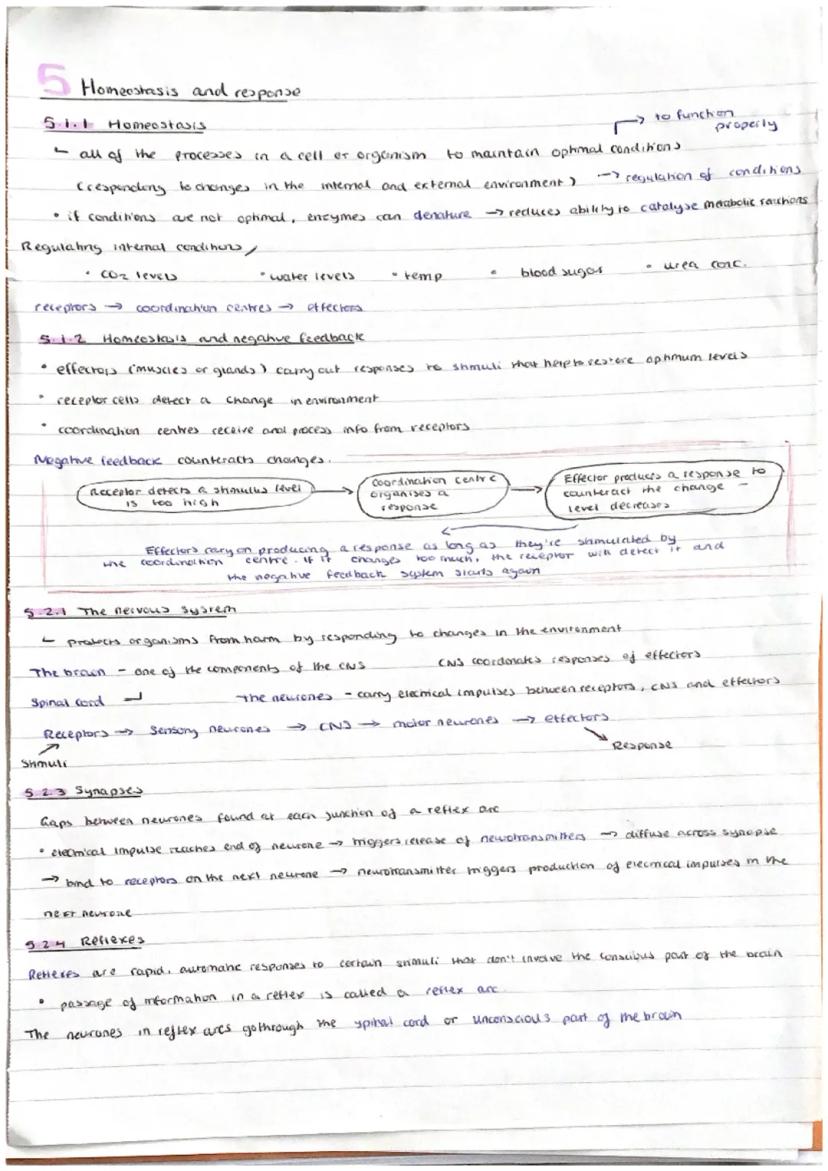 5 Homeostasis and response
5.1.1 Homeostasis
→ to function properly
↳ all of the processes in a cell or organism to maintain optimal conditions
(responding to changes in the internal and external environment) → regulation of conditions
• if conditions are not optimal, enzymes can denature → reduces ability to catalyse metabolic reactions
Regulating internal conditions
• CO2 levels • water levels • temp • blood sugar • urea conc.
receptors → coordination centres → effectors
5.1.2 Homeostasis and negative feedback
• effectors (muscles or glands) carry out responses to stimuli that help to restore optimum levels
• receptor cells detect a change in environment
• coordination centres receive and process info from receptors
Negative feedback counteracts changes.
Receptor detects a stimulus level
is too high
→
Coordination centre
organises a
response
→
Effector produces a response to
counteract the change –
level decreases
Effectors carry on producing a response as long as they're stimulated by
the coordination centre. If it changes too much, the receptor will detect it and
the negative feedback system starts again
5.2.1 The nervous system
↳ protects organisms from harm by responding to changes in the environment
The brain – one of the components of the CNS CNS coordinates responses of effectors
Spinal cord The neurones – carry electrical impulses between receptors, CNS and effectors
Receptors → Sensory neurones → CNS → motor neurones → effectors
Stimuli Response
5.2.3 Synapses
Gaps between neurones found at each junction of a reflex arc
• electrical impulse reaches end of neurone → triggers release of neurotransmitters → diffuse across synapse
→ bind to receptors on the next neurone → neurotransmitter triggers production of electrical impulses in the
next neurone
5.2.4 Reflexes
Reflexes are rapid, automatic responses to certain stimuli that don't involve the conscious part of the brain
• passage of information in a reflex is called a reflex arc.
The neurones in reflex arcs go through the spinal cord or unconscious part of the brain